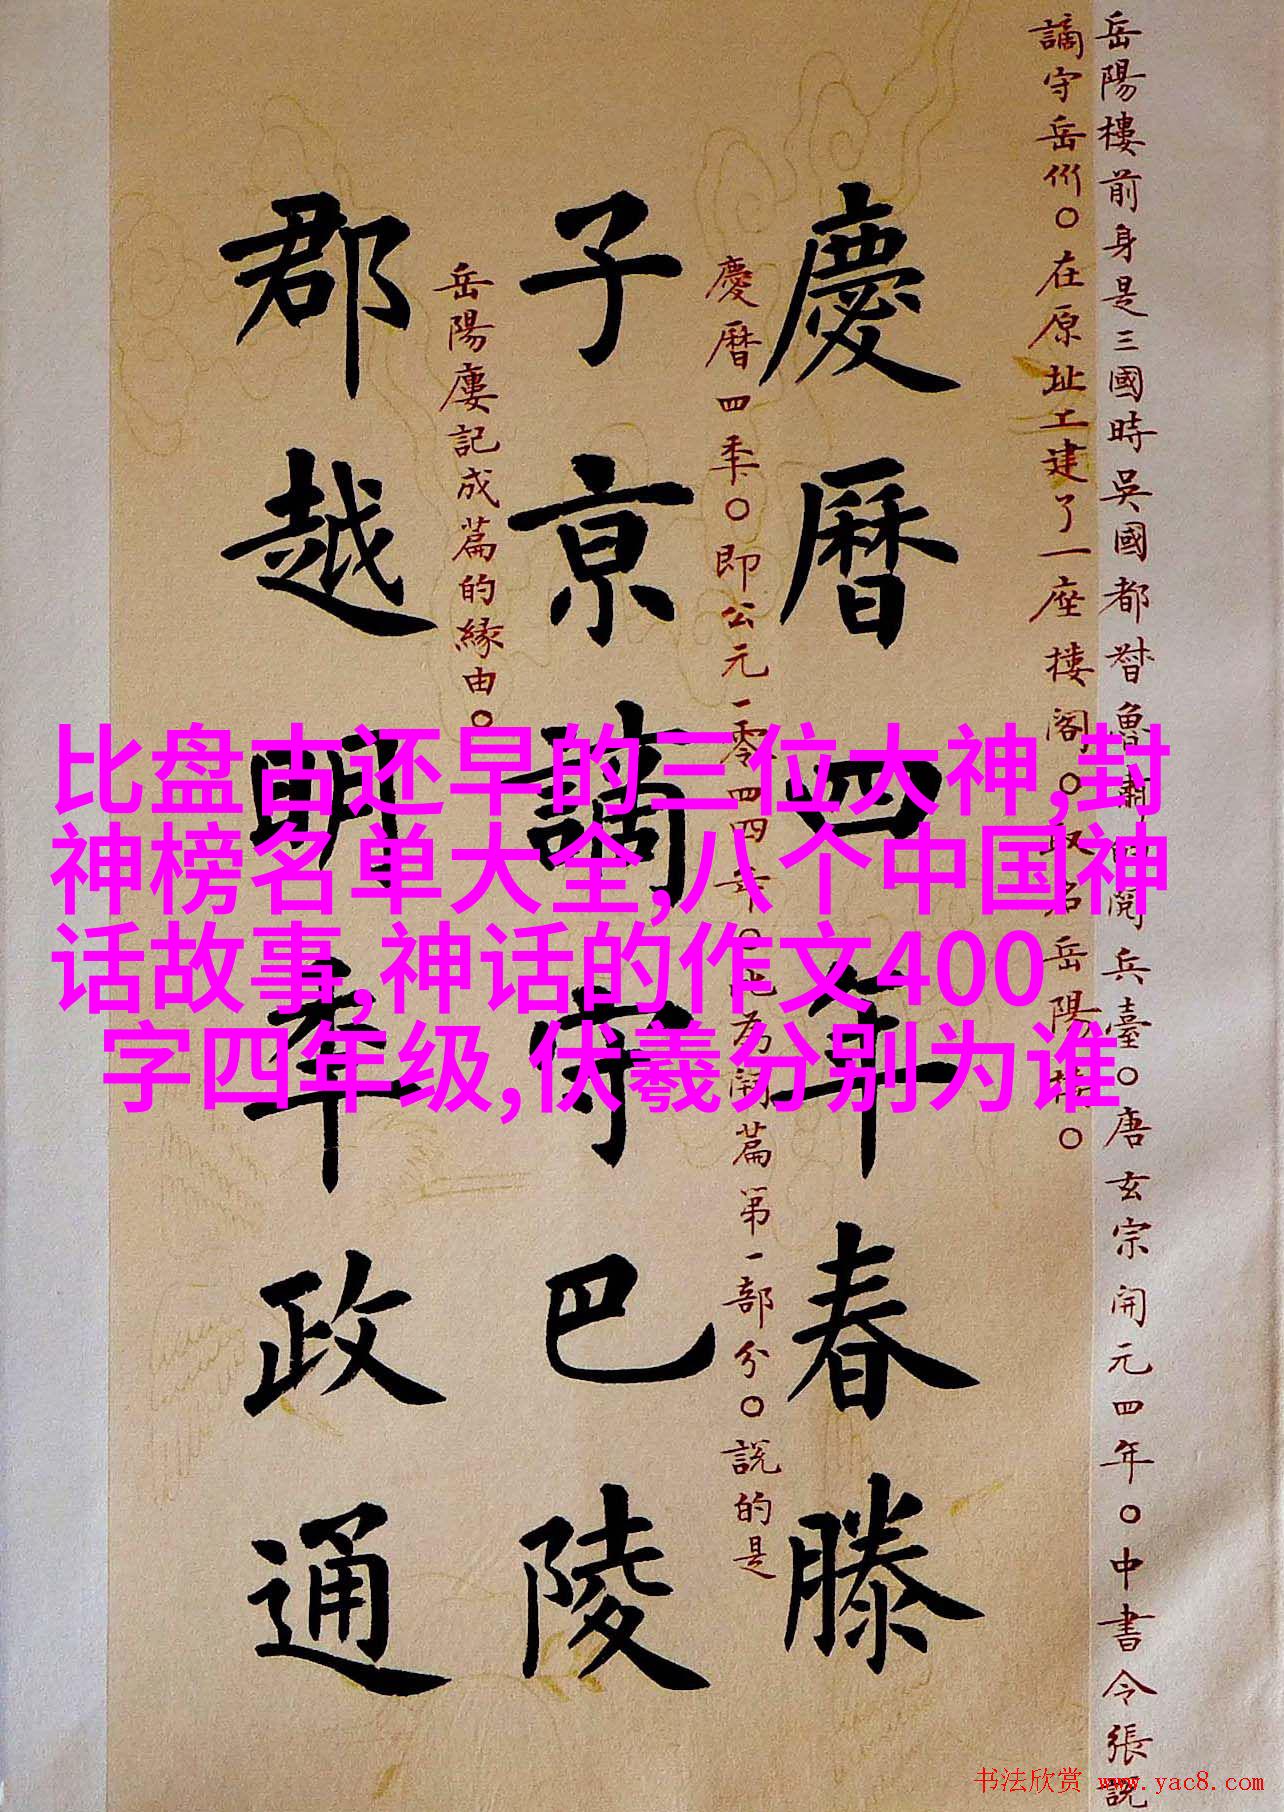 岳陽樓前身是三國時吳國都督魯肅的閱兵臺○唐玄宗開元四年○中書令張說
謫守岳州○在原址工建了一座樓閣○取名岳陽樓○
慶曆四年春滕
慶曆四年○即公元一零四四年○也為開篇第一部分○說的是
子京謫守巴陵
岳陽樓記成篇的緣由○
郡越明年政通
比盘古还早的三位大神,封
神榜名单大全,八个中国神
话故事,神话的作文400
字四年级,伏羲分别为谁
书法欣赏 www.yac8.com